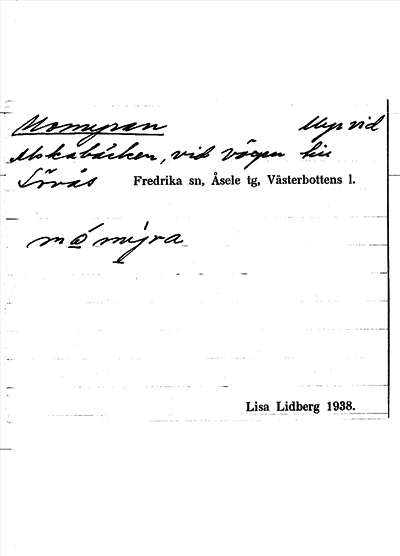 Momyran Myr vid
Alskabäcken, vid vägen till
Lövås Fredrika sn, Åsele tg, Västerbottens l.
mo̱´my̱`ra
Lisa Lidberg 1938.